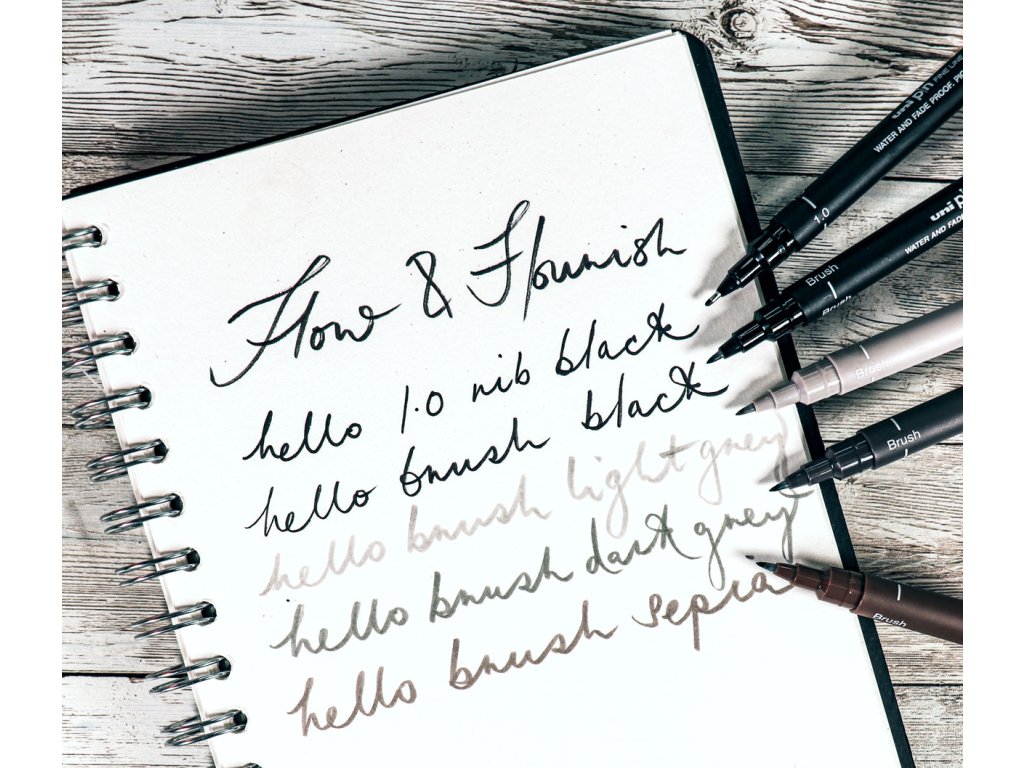 Flow & Flourish
hello 1.0 nib black
hello brush black
hello brush light grey
hello brush dark grey
hello brush sepia
uni pin FINE LINE
WATER AND FADE PROOF. PIG
1.0
uni pin
WATER AND FADE
Brush
Brush
Brush
Brush
Brush